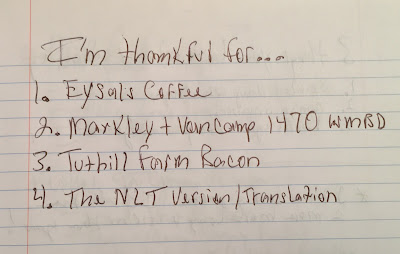 I'm thankful for...
1. Eysals Coffee
2. Markley + Van Camp 1470 WMBD
3. Tuthill Farm Bacon
4. The NLT Version/Translation